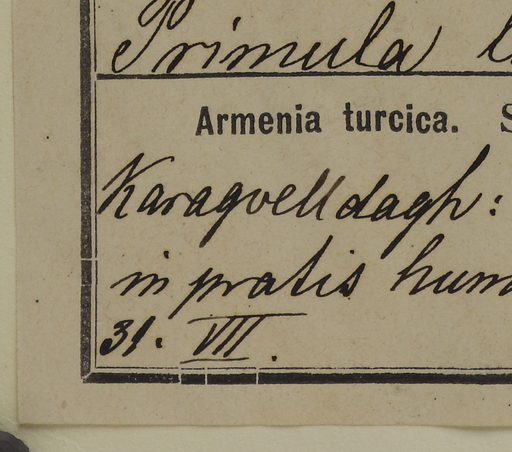 Primula
Armenia turcica.
Karagoelldagh:
in pratis hum
31. VII.